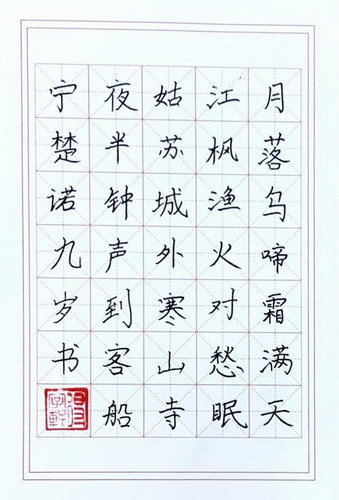 月落乌啼霜满天
江枫渔火对愁眠
姑苏城外寒山寺
夜半钟声到客船
宁楚诺九岁书